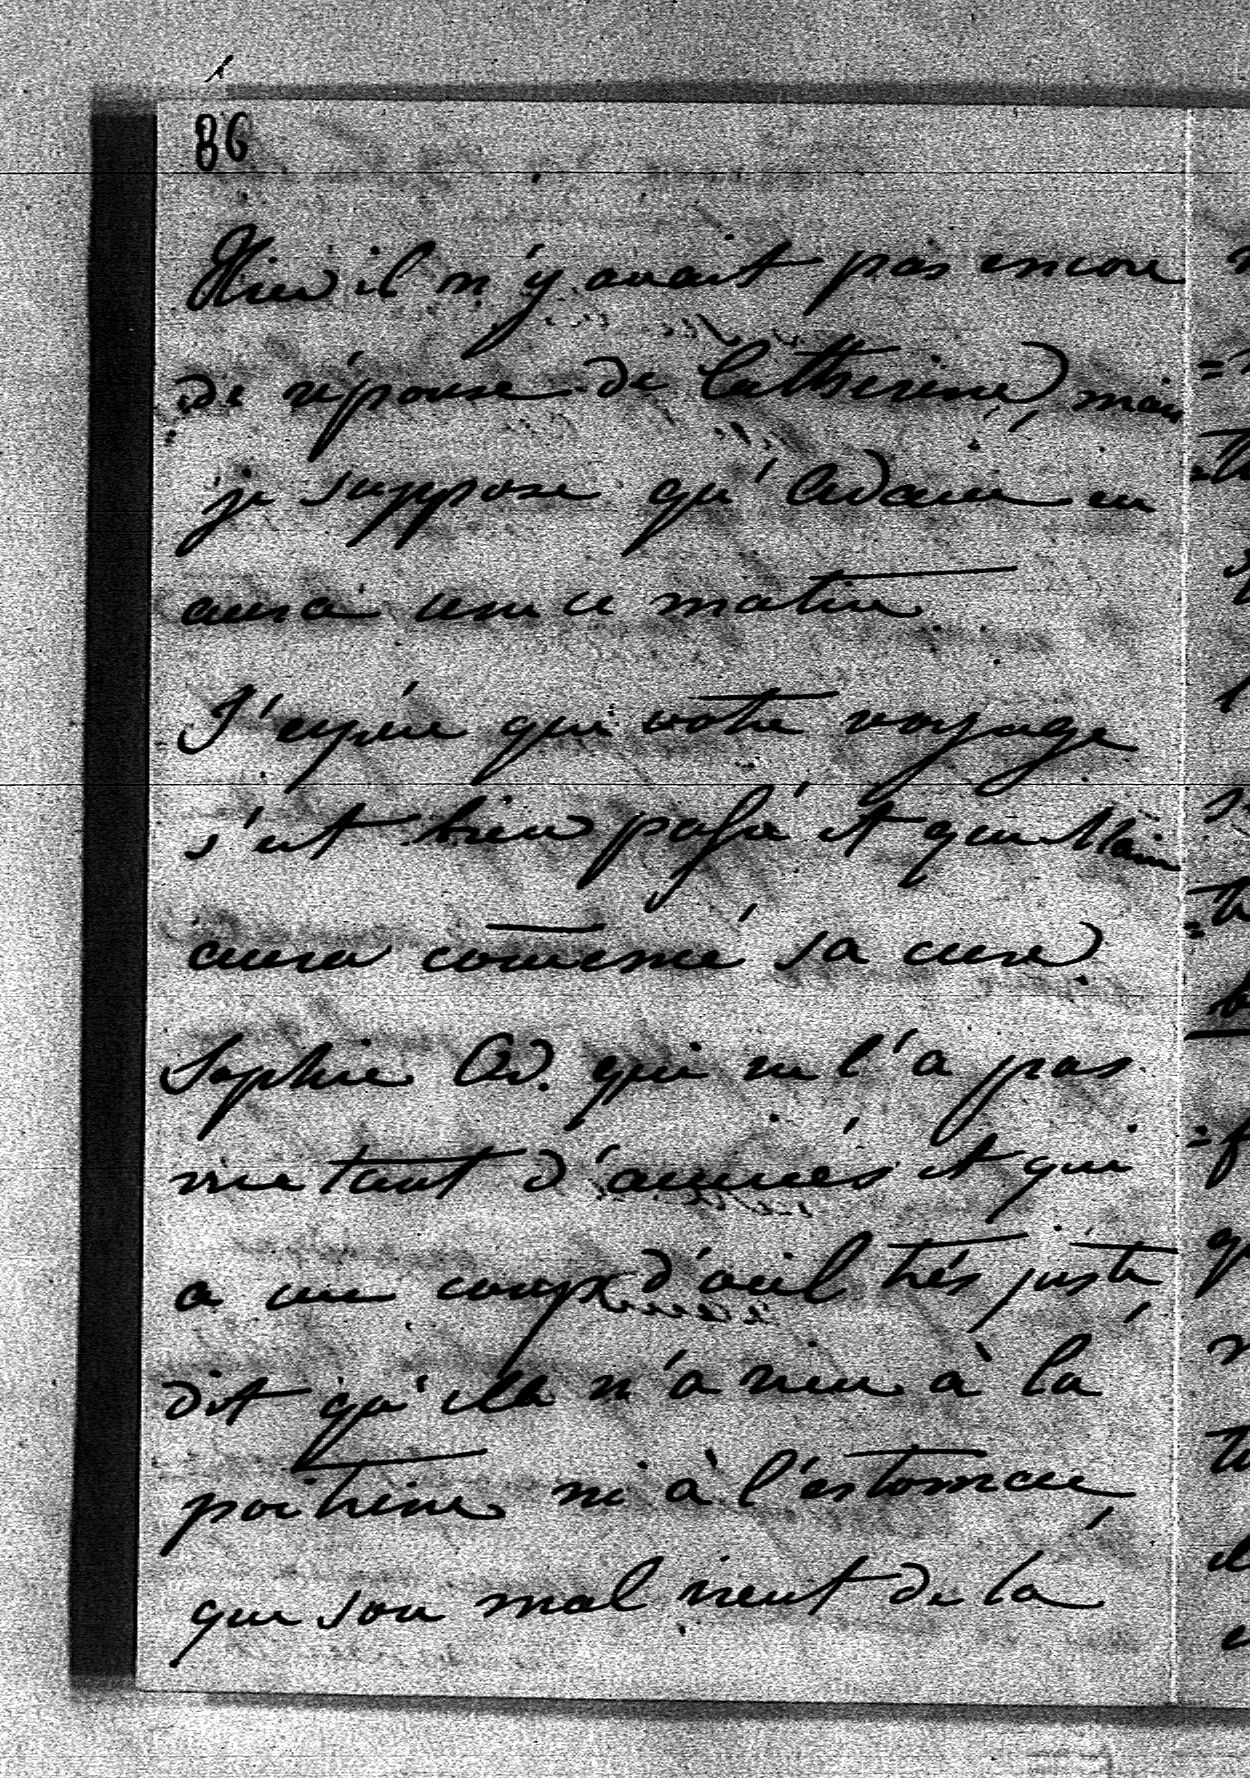 86
Hier il n'y avait pas encore
de réponse de Catherine, mais
je suppose qu'Adam en
aura une ce matin.
J'espère que votre voyage
s'est bien passé et que
aura comencé sa cure.
Sophie Ad. qui ne l'a pas
vue tant d'années et qui
a un coup d'œil très juste,
dit qu'elle n'a rien à la
poitrine ni à l'estomac,
que son mal vient de la